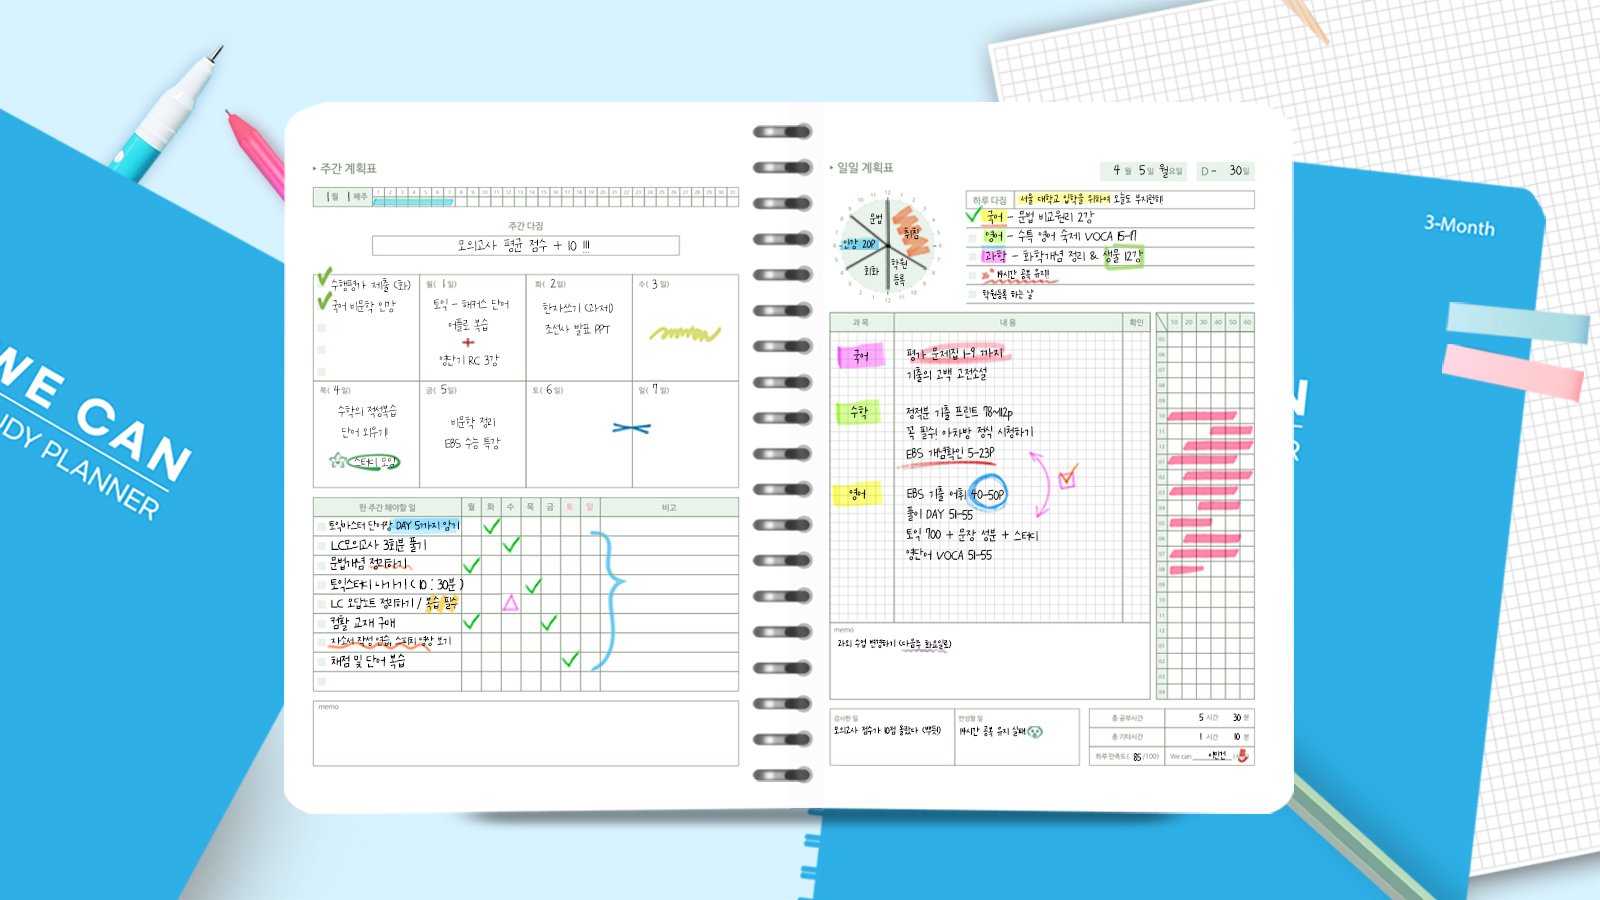 WE CAN
UDY PLANNER
3-Month
주간 계획표
1월 1째주
1 2 3 4 5 6 7 8 9 10 11 12 13 14 15 16 17 18 19 20 21 22 23 24 25 26 27 28 29 30 31
주간 다짐
모의고사 평균 점수 + 10 !!!
수행평가 제출 (화)
국어 비문학 인강
월( 1 일)
토익 - 해커스 단어
어플로 복습
+
영단기 RC 3강
화( 2 일)
한자쓰기 (과제)
조선사 발표 PPT
수( 3 일)
목( 4 일)
수학의 적성복습
단어 외우기!
스터디 모임
금( 5일)
비문학 정리
EBS 수능 특강
토( 6 일)
일( 7 일)
한 주간 해야할 일 월 화 수 목 금 토 일 비고
토익마스터 단어장 DAY 5까지 암기
LC모의고사 3회분 풀기
문법개념 정리하기
토익스터디 나가기 ( 10 : 30분 )
LC 오답노트 정리하기 / 복습 필수
컴활 교재 구매
자소서 작성 연습, 스피치 영상 보기
채점 및 단어 복습
memo
일일 계획표
4 월 5 일 월요일 D - 30일
문법
취침
인강 20P
회화
학원
등록
하루 다짐 서울 대학교 입학을 위하여 오늘도 부지런히!
국어 - 문법 비교원리 2강
영어 - 수특 영어 숙제 VOCA 15-17
과학 - 화학개념 정리 & 생물 12강
14시간 공복 유지!
학원등록 하는 날
과 목 내 용 확인
10 20 30 40 50 60
국어
평가 문제집 1-9 까지
기출의 고백 고전소설
수학
정적분 기출 프린트 78~112p
꼭 필수! 아차방 정식 시청하기
EBS 개념확인 5-23P
영어
EBS 기출 어휘 40-50P
풀이 DAY 51-55
토익 700 + 문장 성분 + 스터디
영단어 VOCA 51-55
05
06
07
08
09
10
11
12
01
02
03
04
05
06
07
08
09
10
11
12
01
02
03
04
memo
과외 수업 변경하기 (다음주 화요일로)
감사한 일
모의고사 점수가 10점 올랐다 (뿌듯!)
반성할 일
14시간 공복 유지 실패
총 공부시간 5 시간 30 분
총 기타시간 1 시간 10 분
하루 만족도( 85 /100) We can 이민건